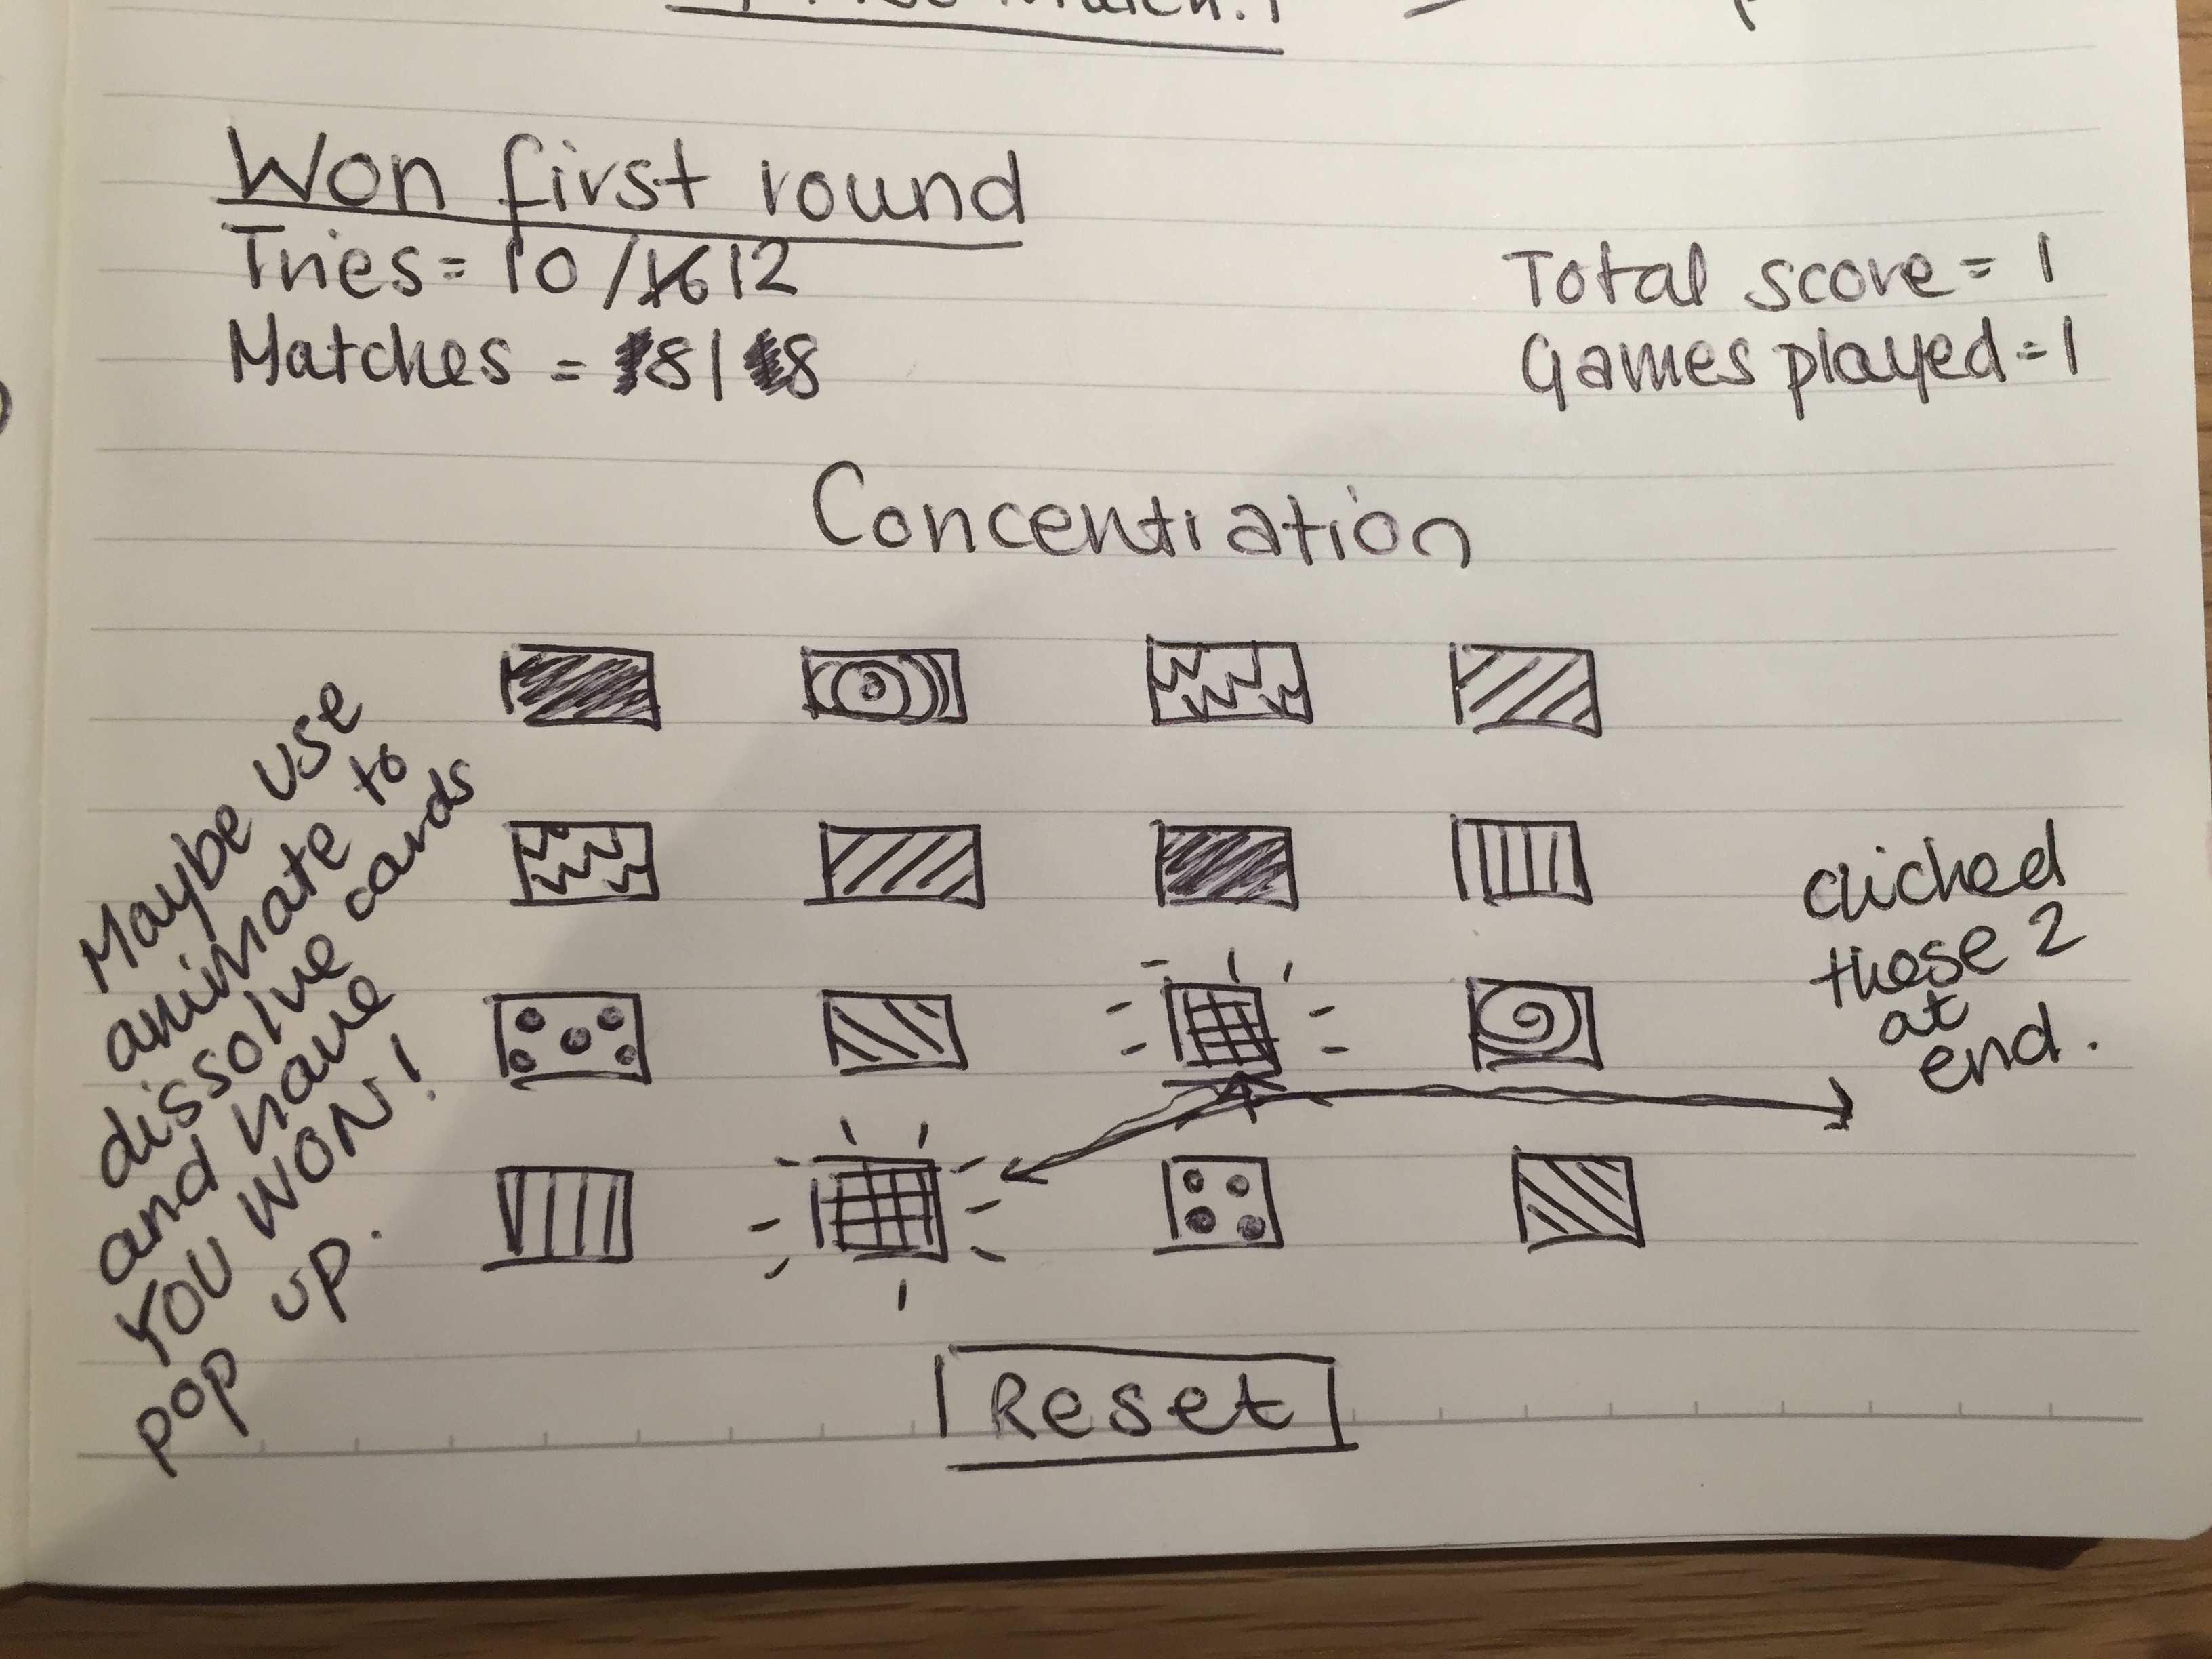 Match.
Won first round
Tries = 10 / 16 12
Matches = 8 / 8
Total score = 1
Games played = 1
Concentration
Maybe use
animate to
dissolve cards
and have
YOU WON!
pop up.
clicked
these 2
at
end.
Reset